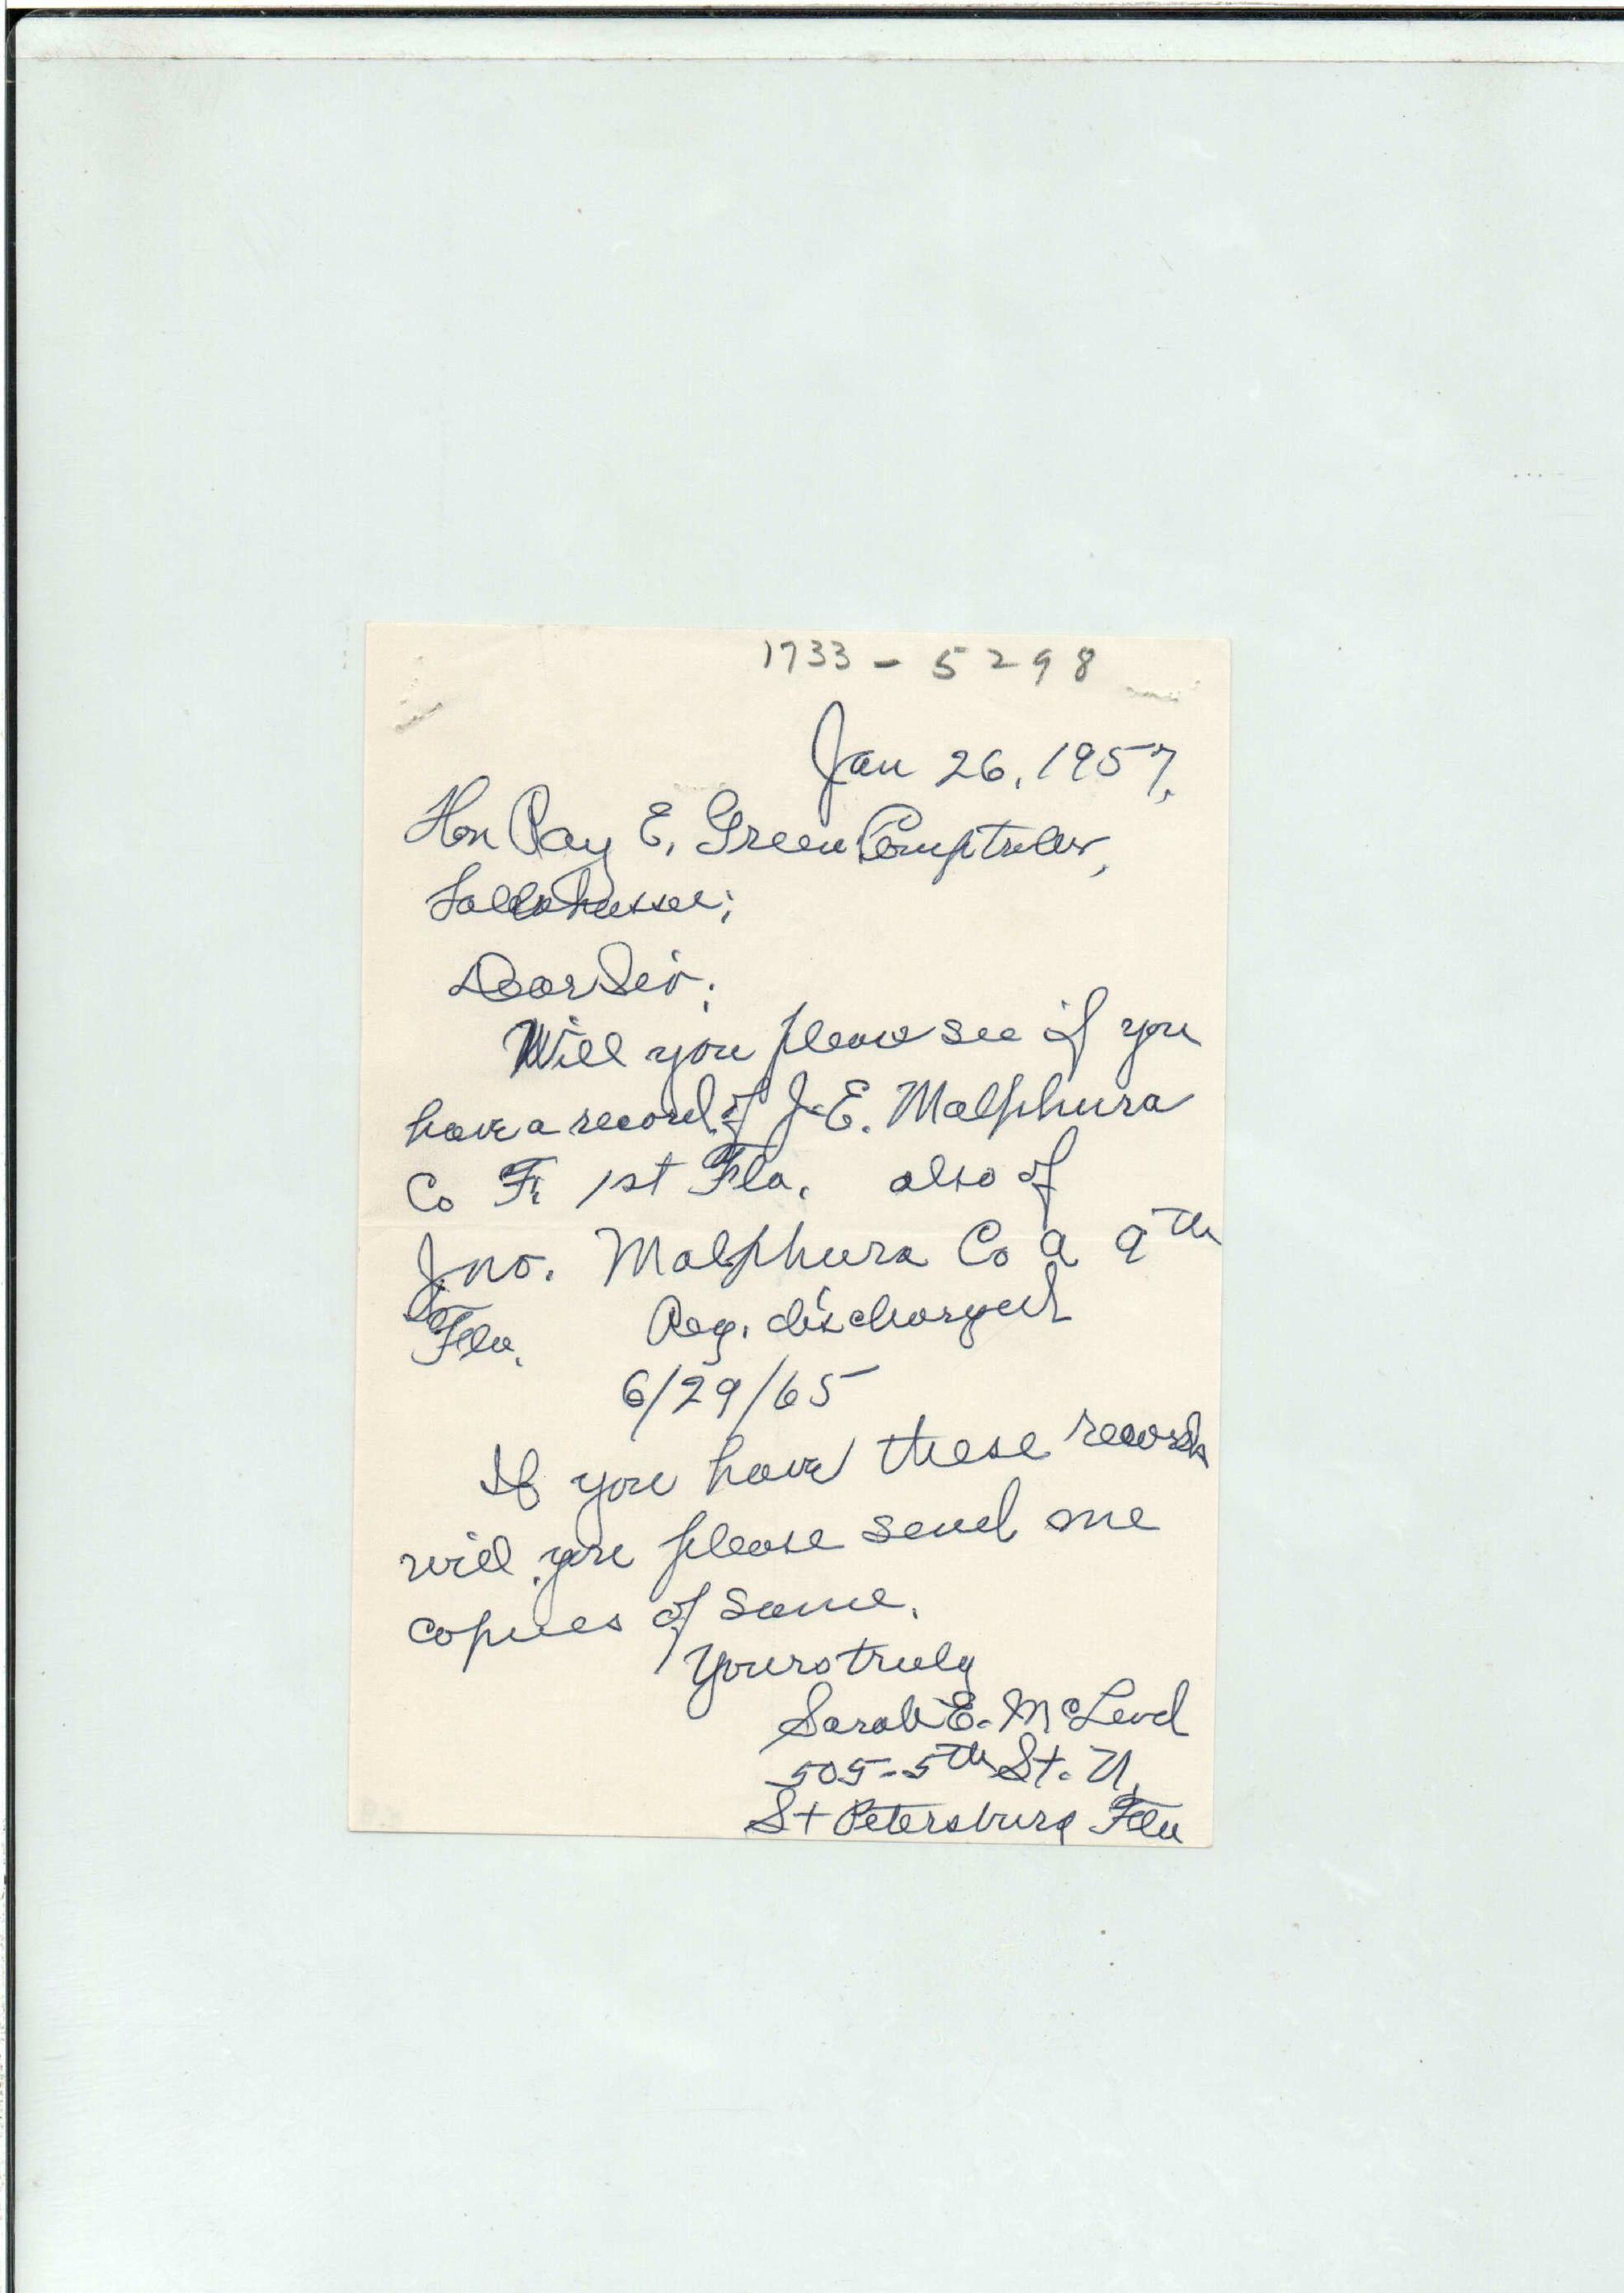 1733 - 5298
Jan 26, 1957,
Hon Ray E. Green Comptroller,
Tallahassee;
Dear Sir;
Will you please see if you
have a record of J.E. Malphurs
Co F. 1st Fla. also of
Jno. Malphurs Co a 9th
Fla. Reg. discharged
6/29/65
If you have these records
will you please send me
copies of same.
Yours truly
Sarah E. McLeod
505-5th St. N.
St Petersburg Fla